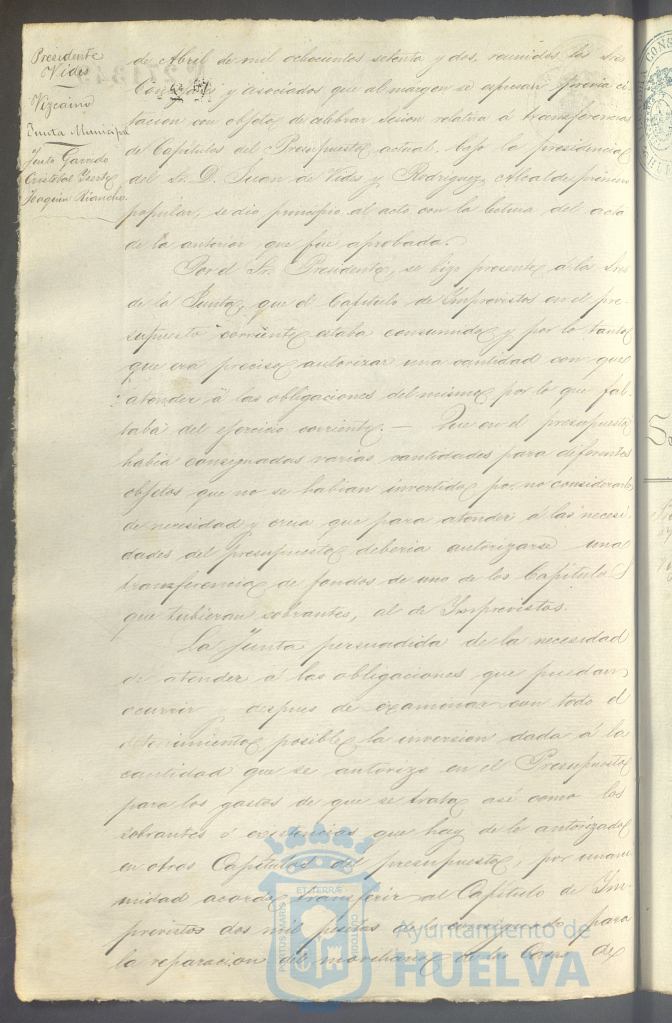 Presidente
Vides
Vizcaino
Junta Municipal
Justo Garrido
Cristobal
Joaquin Riancho
de Abril de mil ochocientos setenta y dos, reunidos los Sres
Concejales y asociados que al margen se espresan previa ci-
tacion con objeto de celebrar sesion relativa á transferencias
de Capítulos del Presupuesto actual, bajo la presidencia
del Sr. D. Juan de Vides y Rodriguez, Alcalde primero
popular, se dio principio al acto con la lectura del acta
de la anterior que fue aprobada.
Por el Sr. Presidente, se hizo presente á los Sres
de la Junta, que el Capítulo de Imprevistos en el pre-
supuesto corriente estaba consumido y por lo tanto
que era preciso autorizar una cantidad con que
atender á las obligaciones del mismo por lo que fal-
taba del ejercicio corriente. — Que en el presupuesto
habia consignadas varias cantidades para diferentes
objetos que no se habian invertido por no considerarlo
de necesidad y creia que para atender á las necesi-
dades del presupuesto deberia autorizarse una
transferencia de fondos de uno de los Capítulos
que tubieran sobrantes, al de Imprevistos.
La Junta persuadida de la necesidad
de atender á las obligaciones que puedan
ocurrir y despues de examinar con todo el
detenimiento posible la inversion dada á la
cantidad que se autorizó en el Presupuesto
para los gastos de que se trata así como los
sobrantes ó existencias que hay de lo autorizado
en otros Capítulos del presupuesto, por unani-
midad acordó transferir al Capítulo de Im-
previstos dos mil pesetas de lo consignado para
la reparacion del moviliario de las Casas de
PORTUS MARIS ET TERRÆ CUSTODIA
Ayuntamiento de
HUELVA